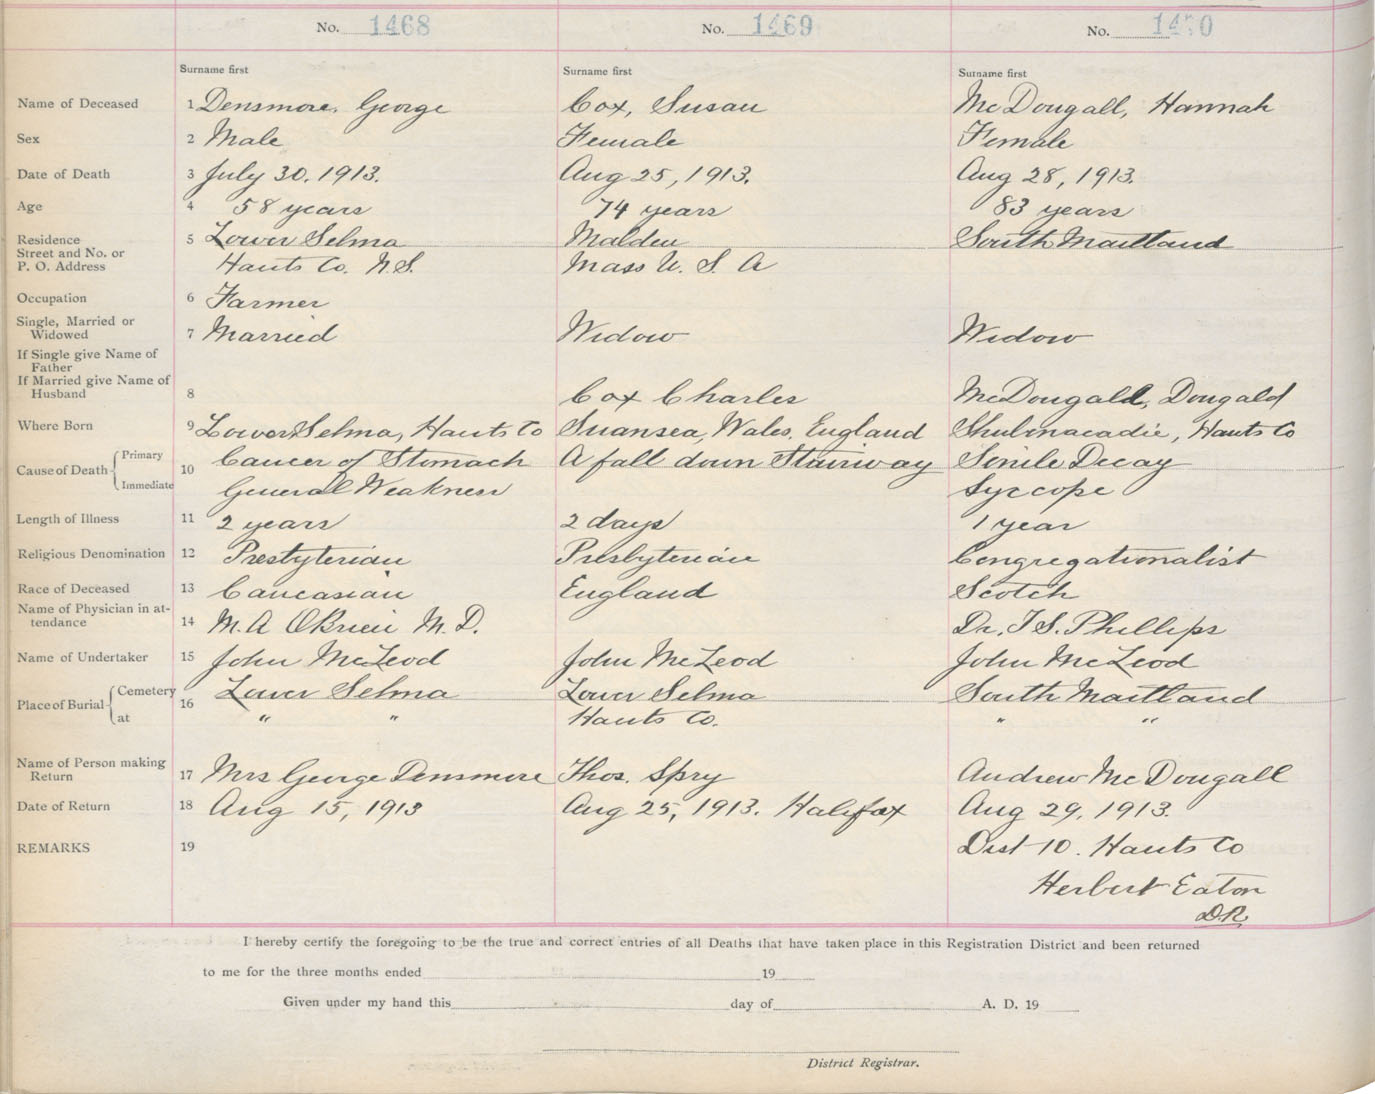 No. 1468 No. 1469 No. 1470
Surname first Surname first Surname first
Name of Deceased 1 Densmore, George Cox, Susan McDougall, Hannah
Sex 2 Male Female Female
Date of Death 3 July 30. 1913. Aug 25, 1913. Aug 28, 1913.
Age 4 58 years 74 years 83 years
Residence 5 Lower Selma Malden South Maitland
Street and No. or
P. O. Address Hants Co. N.S. Mass U. S. A
Occupation 6 Farmer
Single, Married or
Widowed 7 Married Widow Widow
If Single give Name of
Father
If Married give Name of
Husband 8 Cox Charles McDougald, Dougald
Where Born 9 Lower Selma, Hants Co Suansea, Wales, England Shubnacadie, Hants Co
Cause of Death Primary 10 Cancer of Stomach A fall down Stairway Senile Decay
Immediate General Weakness Syncope
Length of Illness 11 2 years 2 days 1 year
Religious Denomination 12 Presbyterian Presbyterian Congregationalist
Race of Deceased 13 Caucasian England Scotch
Name of Physician in at-
tendance 14 M. A OBrien M. D. Dr. T S. Phillips
Name of Undertaker 15 John McLeod John McLeod John McLeod
Place of Burial Cemetery 16 Lower Selma Lower Selma South Maitland
at " " Hants Co. " "
Name of Person making
Return 17 Mrs George Densmore Thos. Spry Andrew McDougall
Date of Return 18 Aug 15, 1913 Aug 25, 1913. Halifax Aug 29, 1913.
REMARKS 19 Dist 10. Hants Co
Herbert Eaton
D.R.
I hereby certify the foregoing to be the true and correct entries of all Deaths that have taken place in this Registration District and been returned
to me for the three months ended 19
Given under my hand this day of A. D. 19
District Registrar.